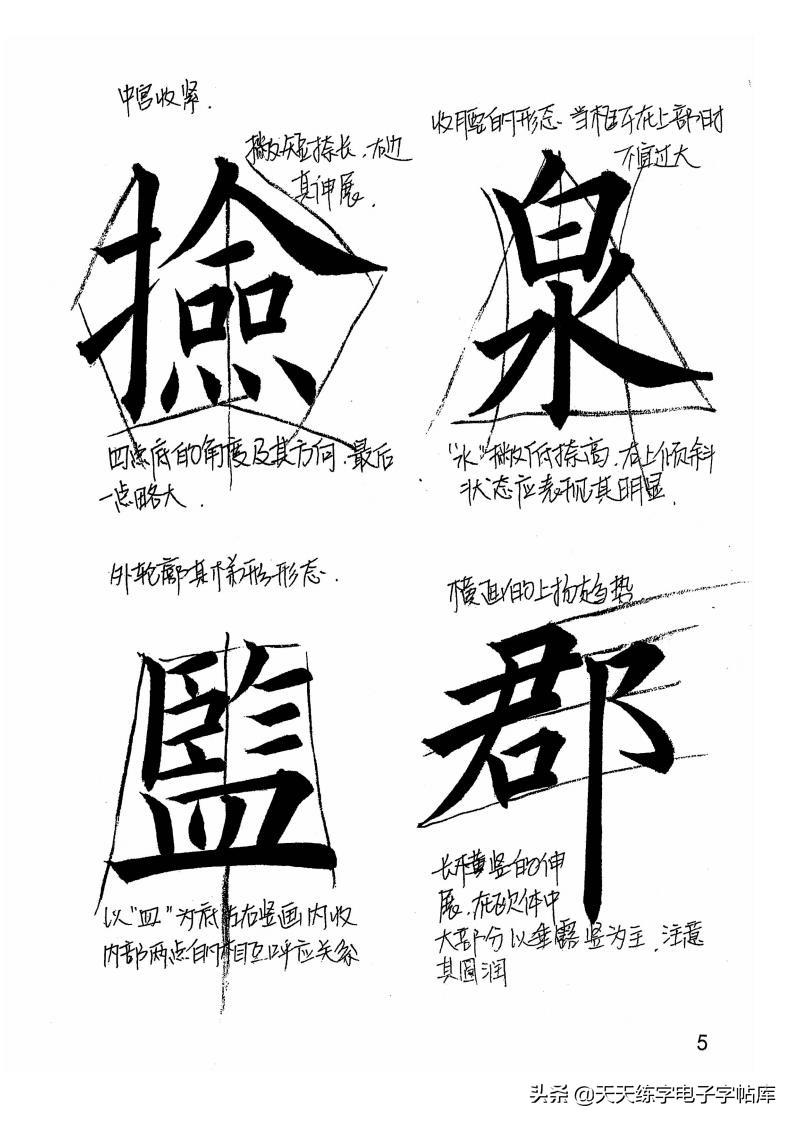 中宫收紧.
撇短捺长,右边
其伸展.
撿
四点底的角度及其方向.最后
一点略大.
收腰的形态.当框下在上部时
不宜过大
泉
“水”撇低捺高.右上倾斜
状态应表现其明显.
外轮廓其梯形形态.
監
以“皿”为底左右竖画内收
内部两点的相互呼应关系
横画的上扬趋势
郡
长横竖的伸
展.在欧体中
大部分以垂露竖为主.注意
其圆润
5
头条 @天天练字电子字帖库